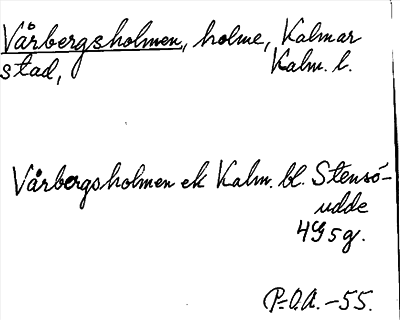 Vårbergsholmen, holme, Kalmar
stad, Kalm. l.
Vårbergsholmen ek Kalm. bl. Stensö-
udde
4G5g.
P=O.A. -55.